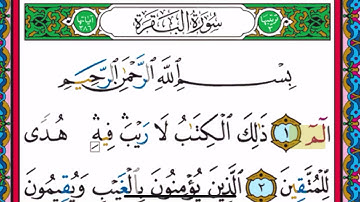 سُورَةُ الْبَقَرَةِ
بِسْمِ اللَّهِ الرَّحْمَٰنِ الرَّحِيمِ
الٓمٓ ١ ذَٰلِكَ الْكِتَابُ لَا رَيْبَ ۛ فِيهِ ۛ هُدًى
لِّلْمُتَّقِينَ ٢ الَّذِينَ يُؤْمِنُونَ بِالْغَيْبِ وَيُقِيمُونَ